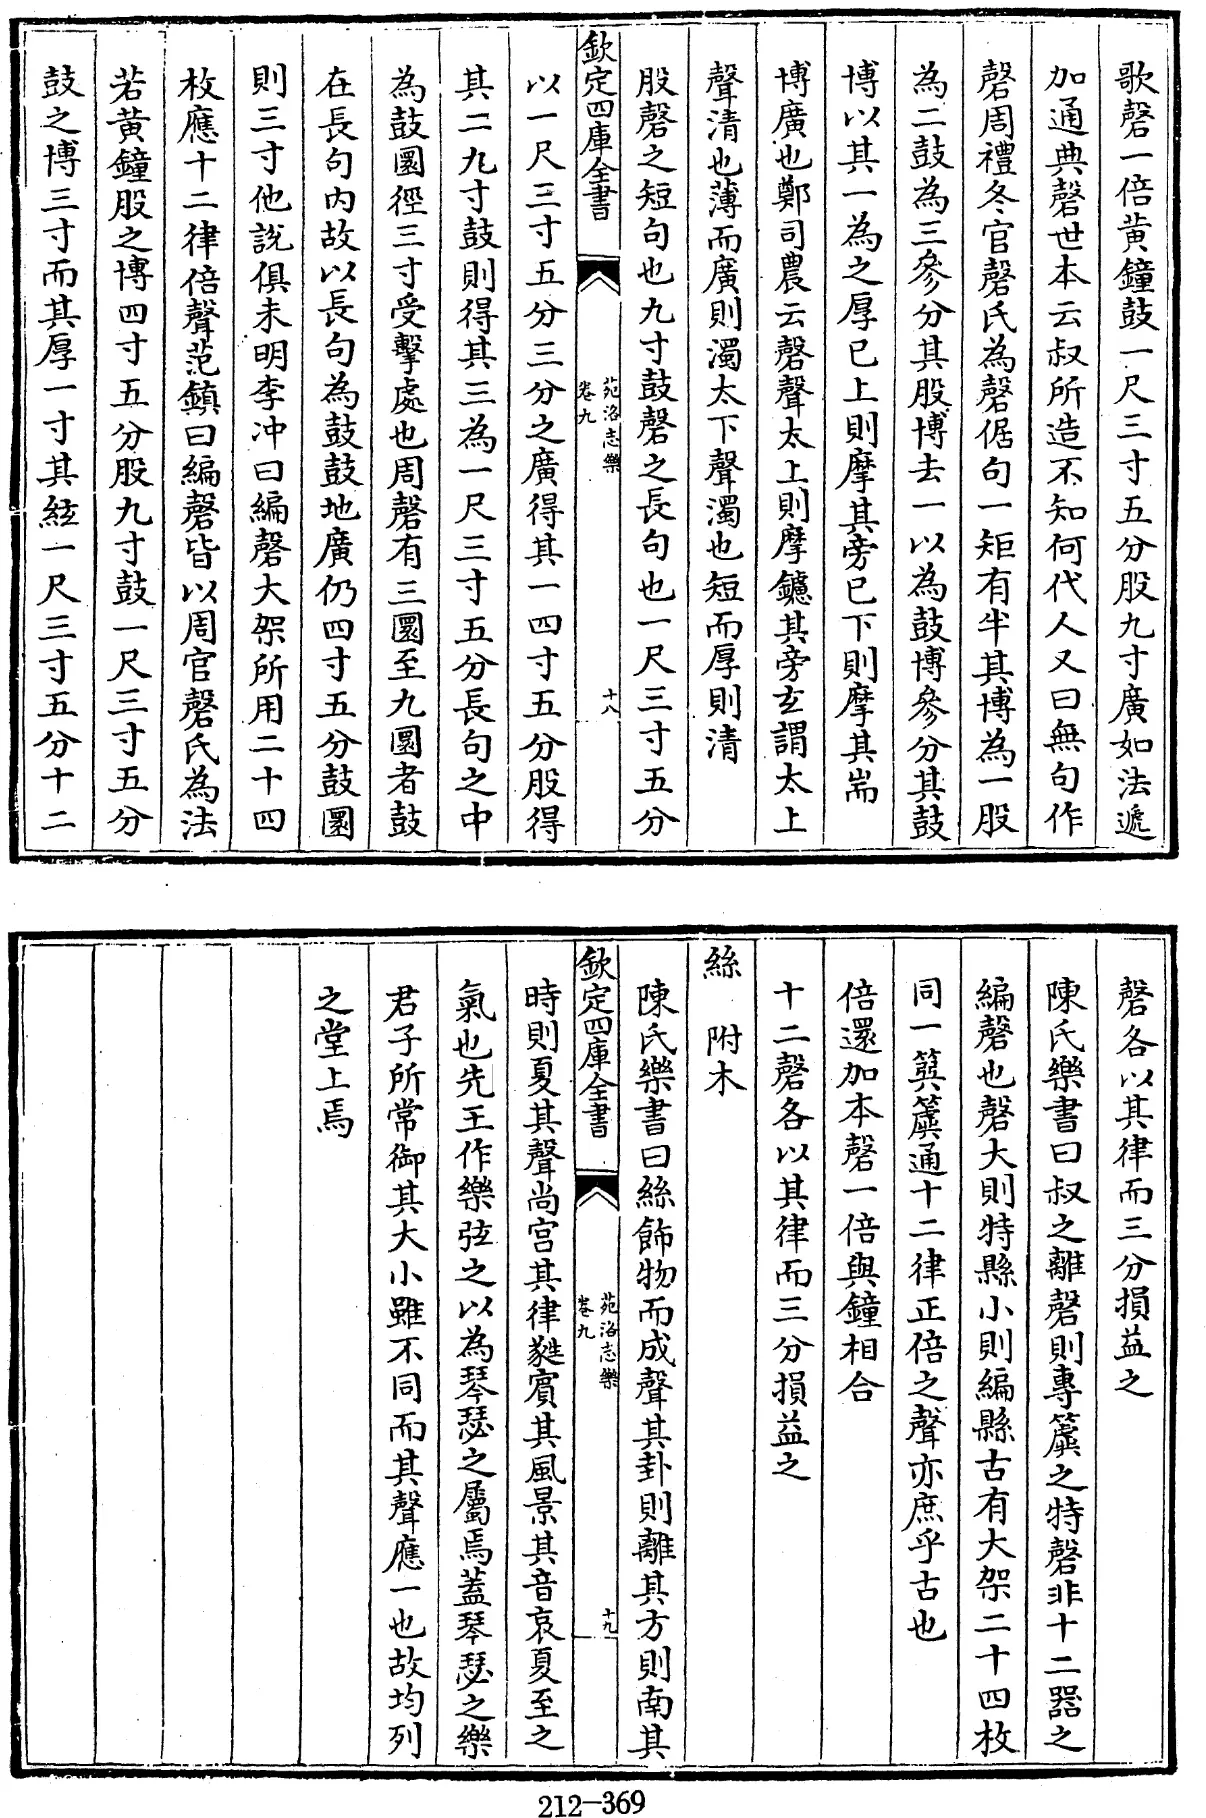 歌磬一倍黄鐘鼓一尺三寸五分股九寸廣如法遞
加通典磬世本云叔所造不知何代人又曰無句作
磬周禮冬官磬氏為磬倨句一矩有半其博為一股
為二鼓為三參分其股博去一以為鼓博參分其鼓
博以其一為之厚已上則摩其旁已下則摩其耑
博廣也鄭司農云磬聲太上則摩鑢其旁玄謂太上
聲清也薄而廣則濁太下聲濁也短而厚則清
股磬之短句也九寸鼓磬之長句也一尺三寸五分
欽定四庫全書
苑洛志樂
卷九
十八
以一尺三寸五分三分之廣得其一四寸五分股得
其二九寸鼓則得其三為一尺三寸五分長句之中
為鼓圜徑三寸受擊處也周磬有三圜至九圜者鼓
在長句內故以長句為鼓鼓地廣仍四寸五分鼓圜
則三寸他說俱未明李冲曰編磬大架所用二十四
枚應十二律倍聲范鎮曰編磬皆以周官磬氏為法
若黃鐘股之博四寸五分股九寸鼓一尺三寸五分
鼓之博三寸而其厚一寸其絃一尺三寸五分十二
磬各以其律而三分損益之
陳氏樂書曰叔之離磬則專簴之特磬非十二器之
編磬也磬大則特縣小則編縣古有大架二十四枚
同一簨簴通十二律正倍之聲亦庶乎古也
倍還加本磬一倍與鐘相合
十二磬各以其律而三分損益之
絲 附木
陳氏樂書曰絲飾物而成聲其卦則離其方則南其
欽定四庫全書
苑洛志樂
卷九
十九
時則夏其聲尚宫其律蕤賓其風景其音哀夏至之
氣也先王作樂弦之以為琴瑟之屬焉蓋琴瑟之樂
君子所常御其大小雖不同而其聲應一也故均列
之堂上焉
212-369